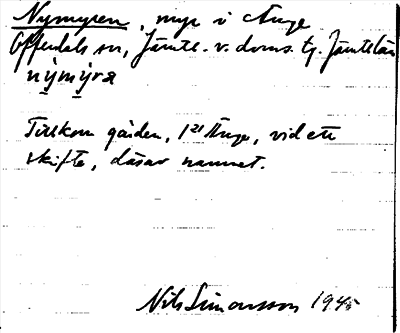 Nymyren, myr i Ånge
Offerdals sn, Jämtl. v. doms. tg. Jämtl. län
nỵ̄mỵ̄ra
Tillkom gården, 1²¹ Ånge, vid ett
skifte, därav namnet.
Nils Simonsson 1945